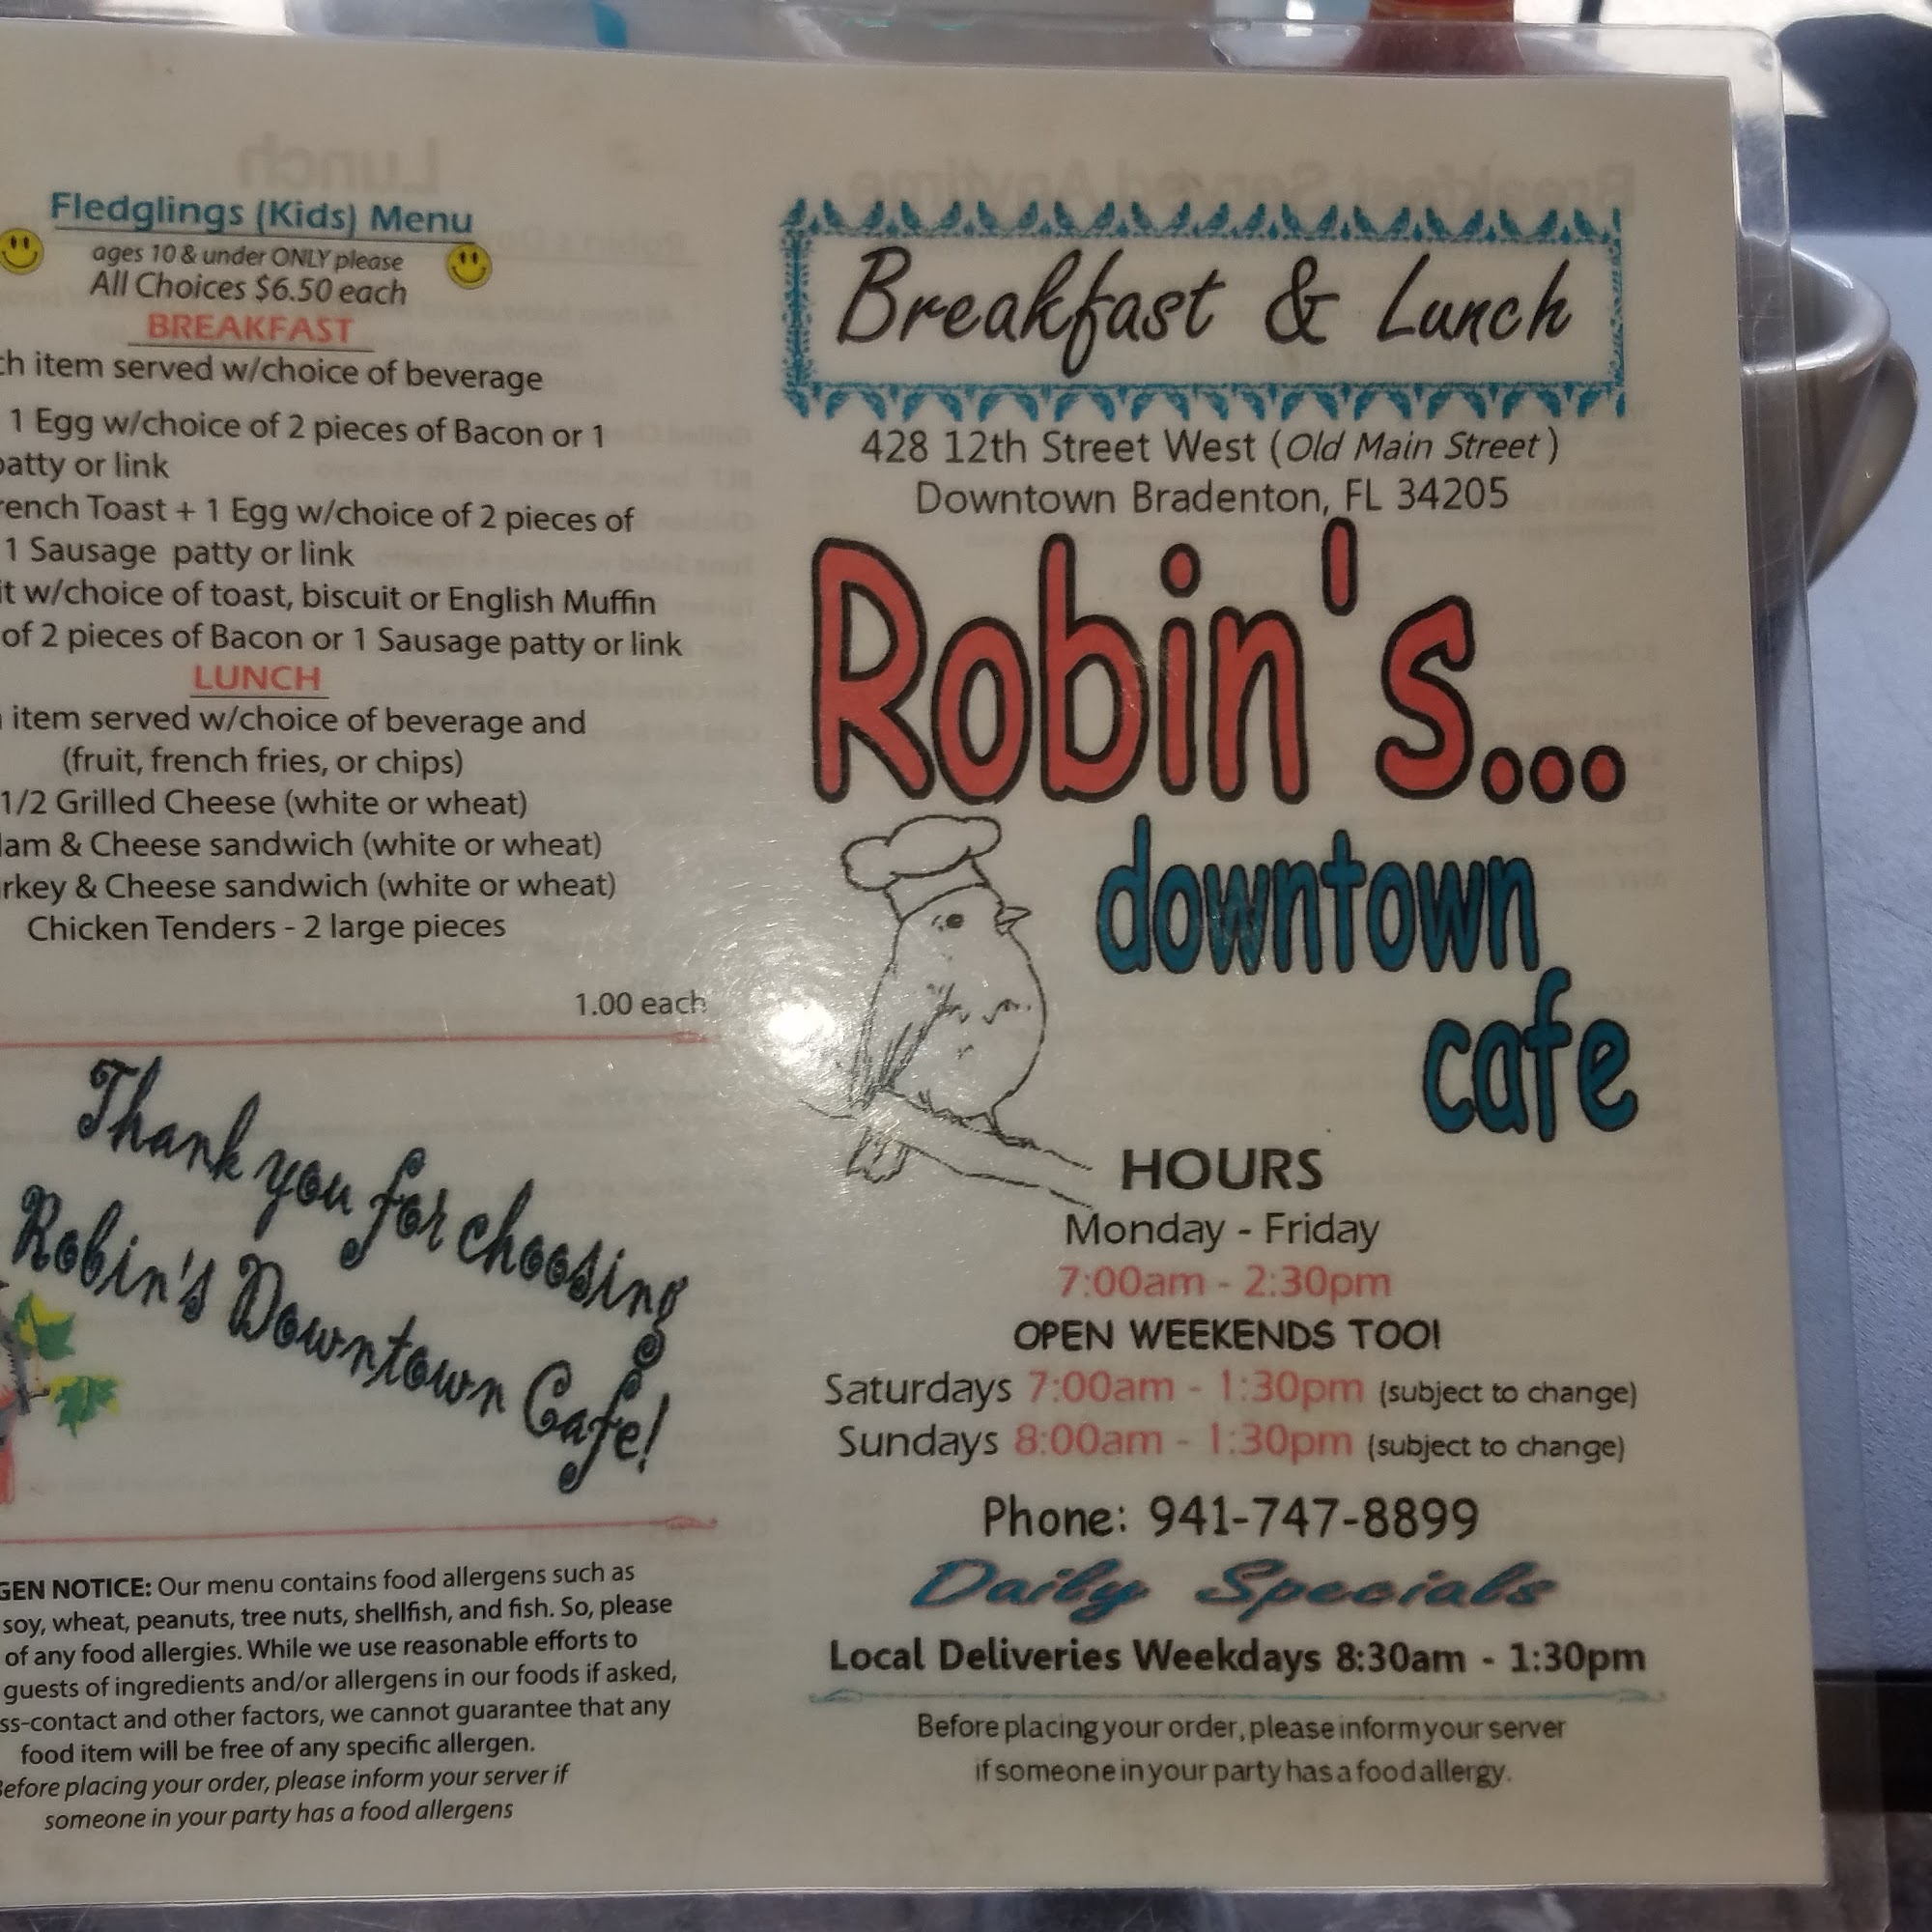 Fledglings (Kids) Menu
ages 10 & under ONLY please
All Choices $6.50 each
BREAKFAST
item served w/choice of beverage
1 Egg w/choice of 2 pieces of Bacon or 1
patty or link
Toast + 1 Egg w/choice of 2 pieces of
1 Sausage patty or link
w/choice of toast, biscuit or English Muffin
of 2 pieces of Bacon or 1 Sausage patty or link
LUNCH
item served w/choice of beverage and
(fruit, french fries, or chips)
1/2 Grilled Cheese (white or wheat)
& Cheese sandwich (white or wheat)
& Cheese sandwich (white or wheat)
Chicken Tenders - 2 large pieces
1.00 each
Thank you for choosing
Robin's Downtown Cafe!
NOTICE: Our menu contains food allergens such as
soy, wheat, peanuts, tree nuts, shellfish, and fish. So, please
of any food allergies. While we use reasonable efforts to
guests of ingredients and/or allergens in our foods if asked,
and other factors, we cannot guarantee that any
food item will be free of any specific allergen.
Before placing your order, please inform your server if
someone in your party has a food allergens
Breakfast & Lunch
428 12th Street West (Old Main Street)
Downtown Bradenton, FL 34205
Robin's...
downtown
cafe
HOURS
Monday - Friday
7:00am - 2:30pm
OPEN WEEKENDS TOO!
Saturdays 7:00am - 1:30pm (subject to change)
Sundays 8:00am - 1:30pm (subject to change)
Phone: 941-747-8899
Daily Specials
Local Deliveries Weekdays 8:30am - 1:30pm
Before placing your order, please inform your server
if someone in your party has a food allergy.